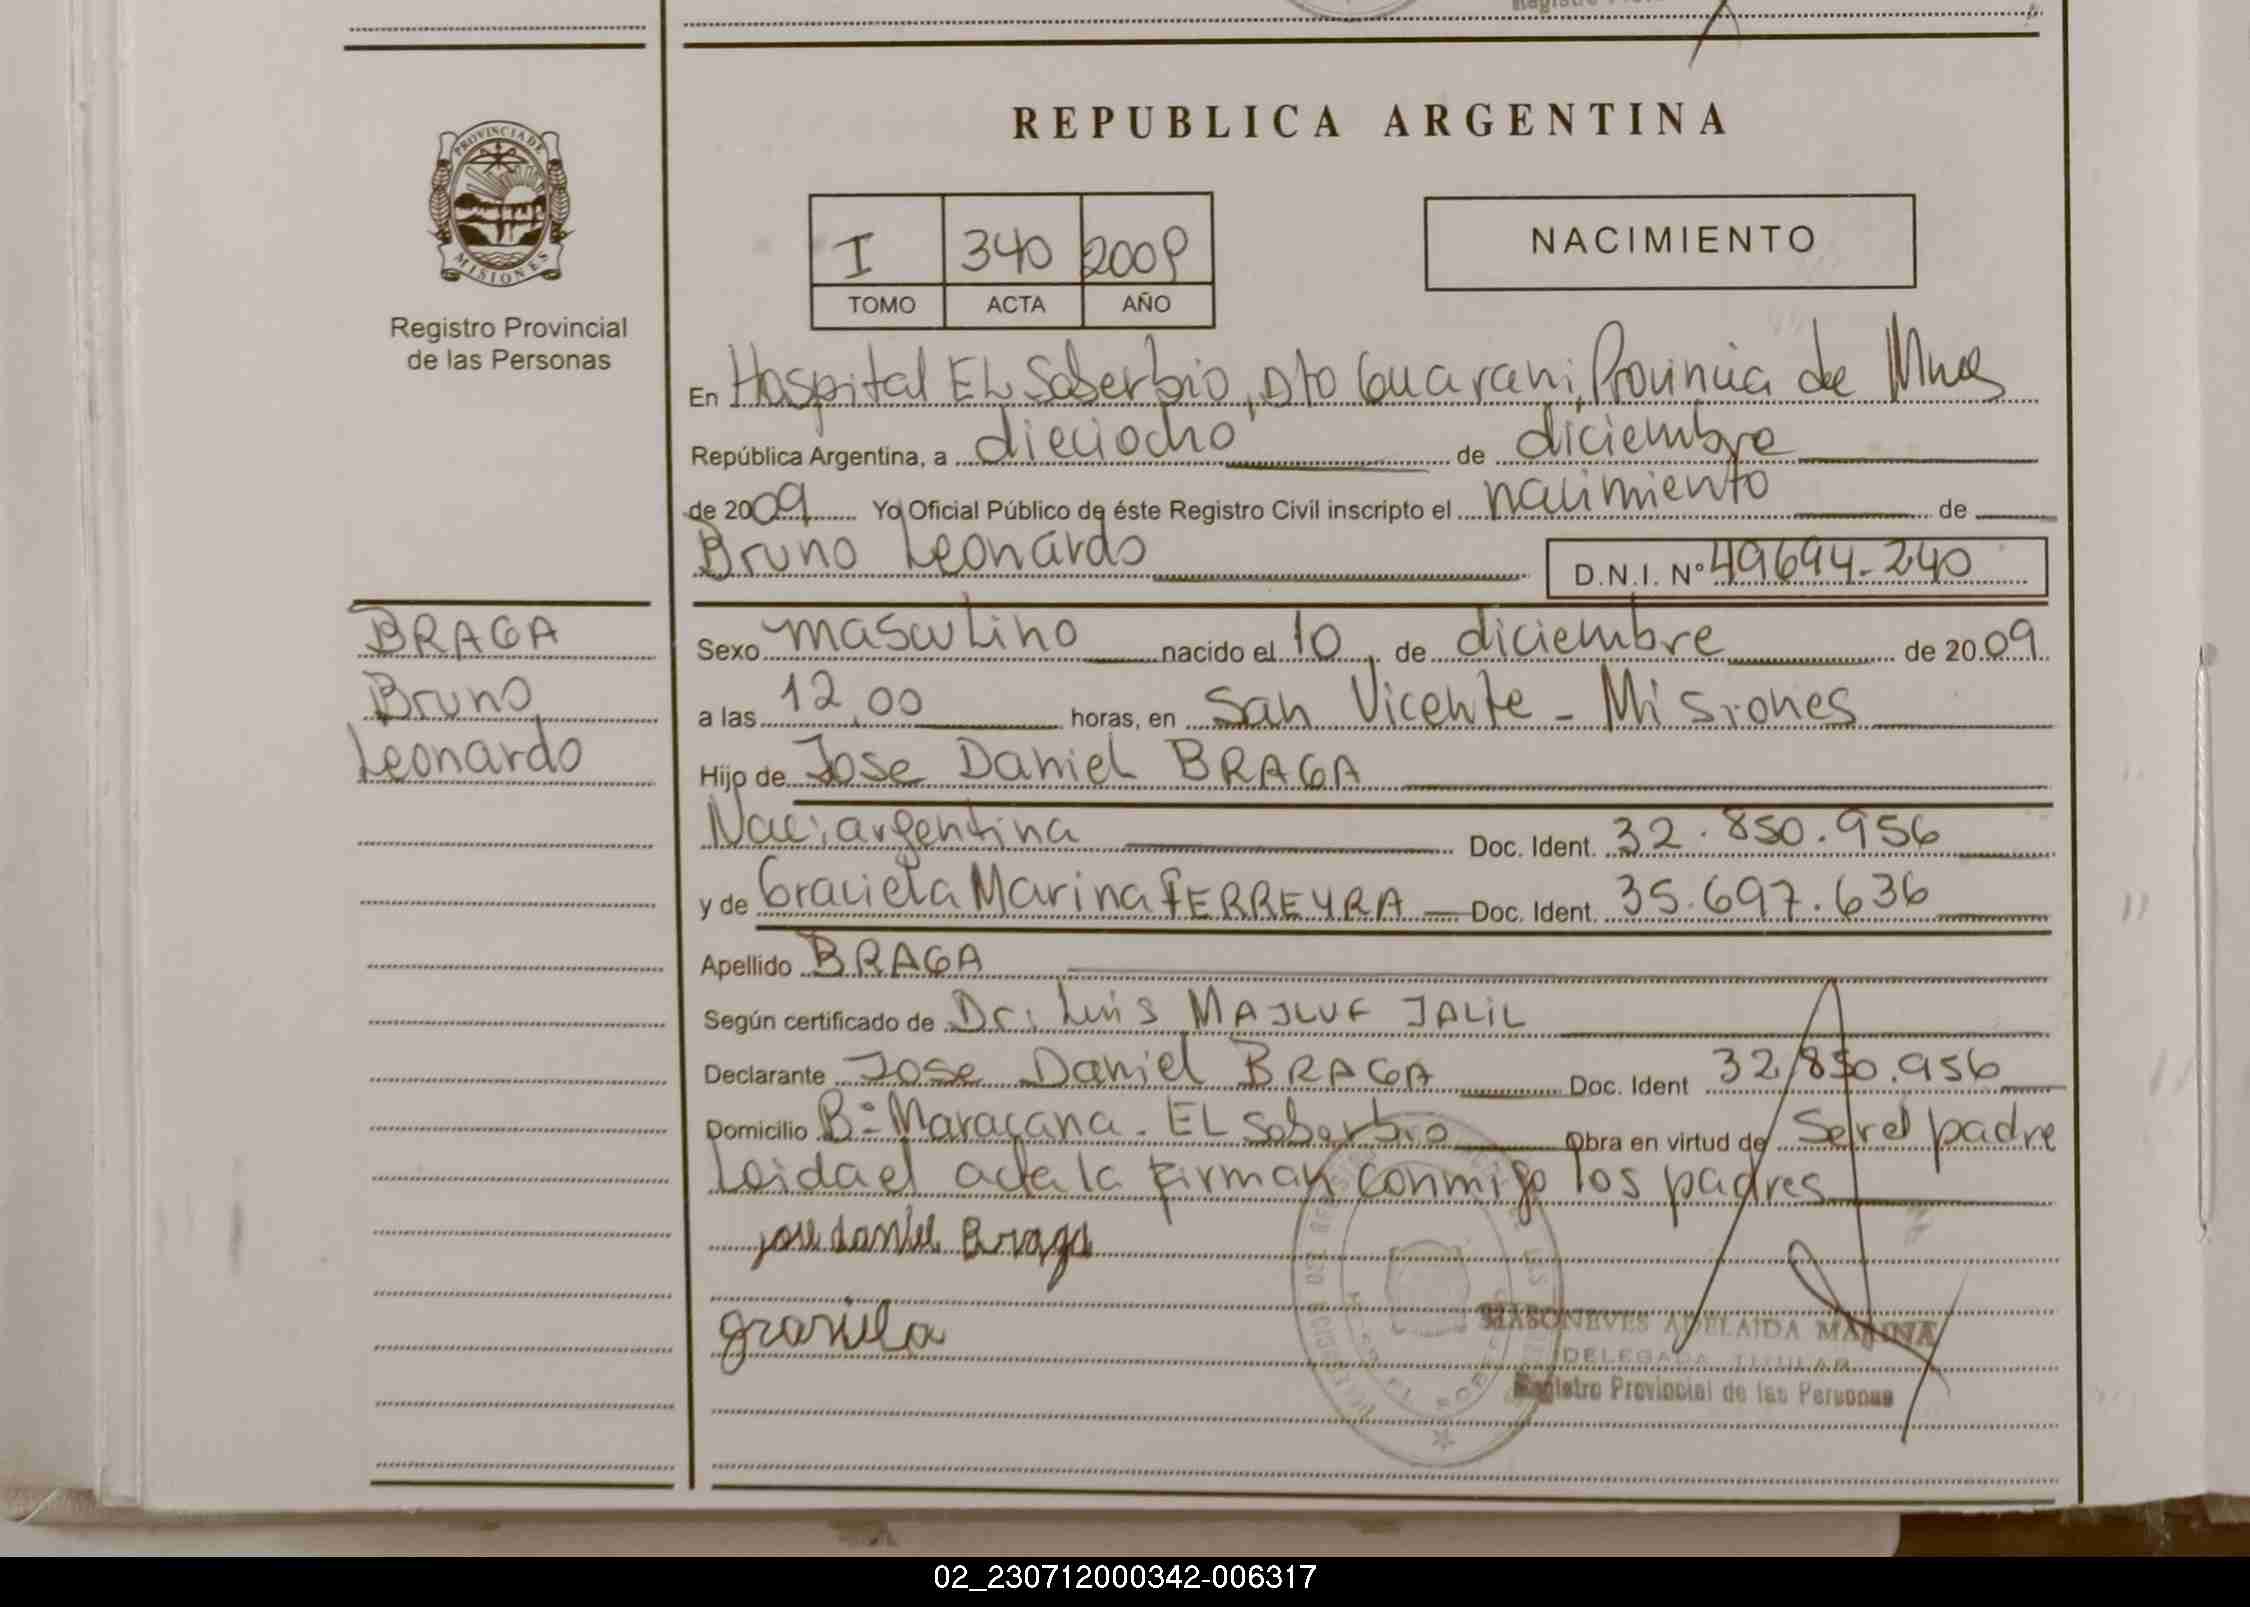 REPUBLICA ARGENTINA
PROVINCIA DE
MISIONES
Registro Provincial
de las Personas
I 340 2009
TOMO ACTA AÑO
NACIMIENTO
En Hospital EL Soberbio, Dto Guarani, Provincia de Mnes
República Argentina, a dieciocho de diciembre
de 2009 Yo Oficial Público de éste Registro Civil inscripto el nacimiento de
Bruno Leonardo D.N.I. Nº 49694.240
BRAGA
Bruno
Leonardo
Sexo masculino nacido el 10 de diciembre de 2009
a las 12,00 horas, en San Vicente - Misiones
Hijo de Jose Daniel BRAGA
Nac: argentina Doc. Ident. 32.850.956
y de Graciela Marina FERREYRA Doc. Ident. 35.697.636
Apellido BRAGA
Según certificado de Dr: Luis MAJLUF JALIL
Declarante Jose Daniel BRAGA Doc. Ident 32.850.956
Domicilio Bº Maracana - EL Soberbio Obra en virtud de Ser el padre
Leida el acta la firman conmigo los padres
jose daniel Braga
grasiela
MASONEVES ADELAIDA MARINA
DELEGADA TITULAR
Registro Provincial de las Personas
02_230712000342-006317